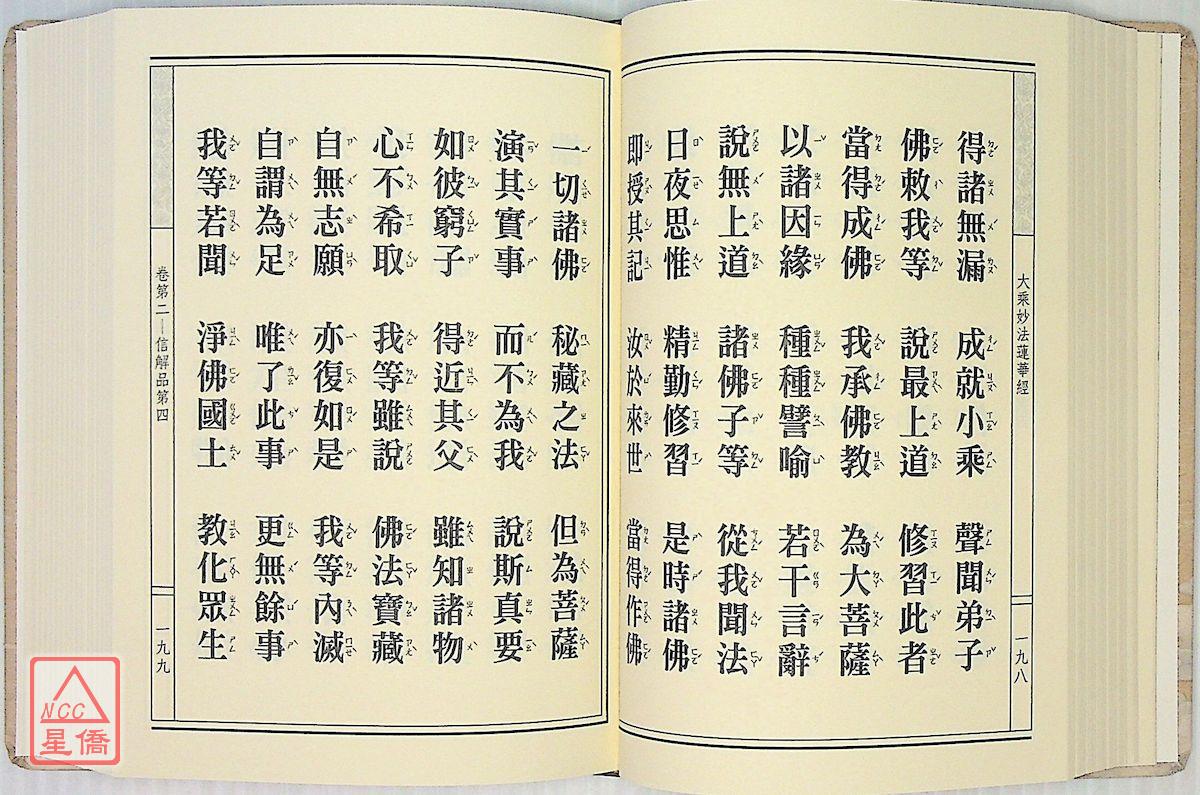 大乘妙法蓮華經
一九八
得諸無漏 成就小乘 聲聞弟子
佛敕我等 說最上道 修習此者
當得成佛 我承佛教 為大菩薩
以諸因緣 種種譬喻 若干言辭
說無上道 諸佛子等 從我聞法
日夜思惟 精勤修習 是時諸佛
即授其記 汝於來世 當得作佛
一切諸佛 秘藏之法 但為菩薩
演其實事 而不為我 說斯真要
如彼窮子 得近其父 雖知諸物
心不希取 我等雖說 佛法寶藏
自無志願 亦復如是 我等內滅
自謂為足 唯了此事 更無餘事
我等若聞 淨佛國土 教化眾生
卷第二—信解品第四
一九九
NCC
星僑